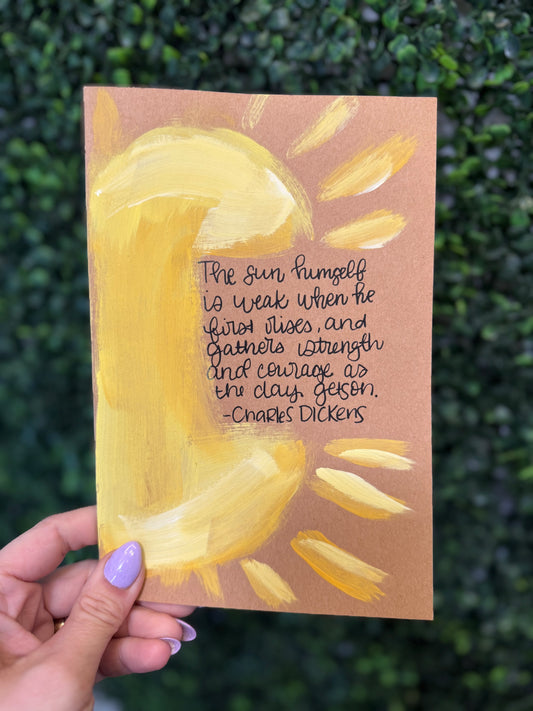 The sun humself
is weak when he
first rises, and
gathers strength
and courage as
the day getson.
-CHARLES DICKENS